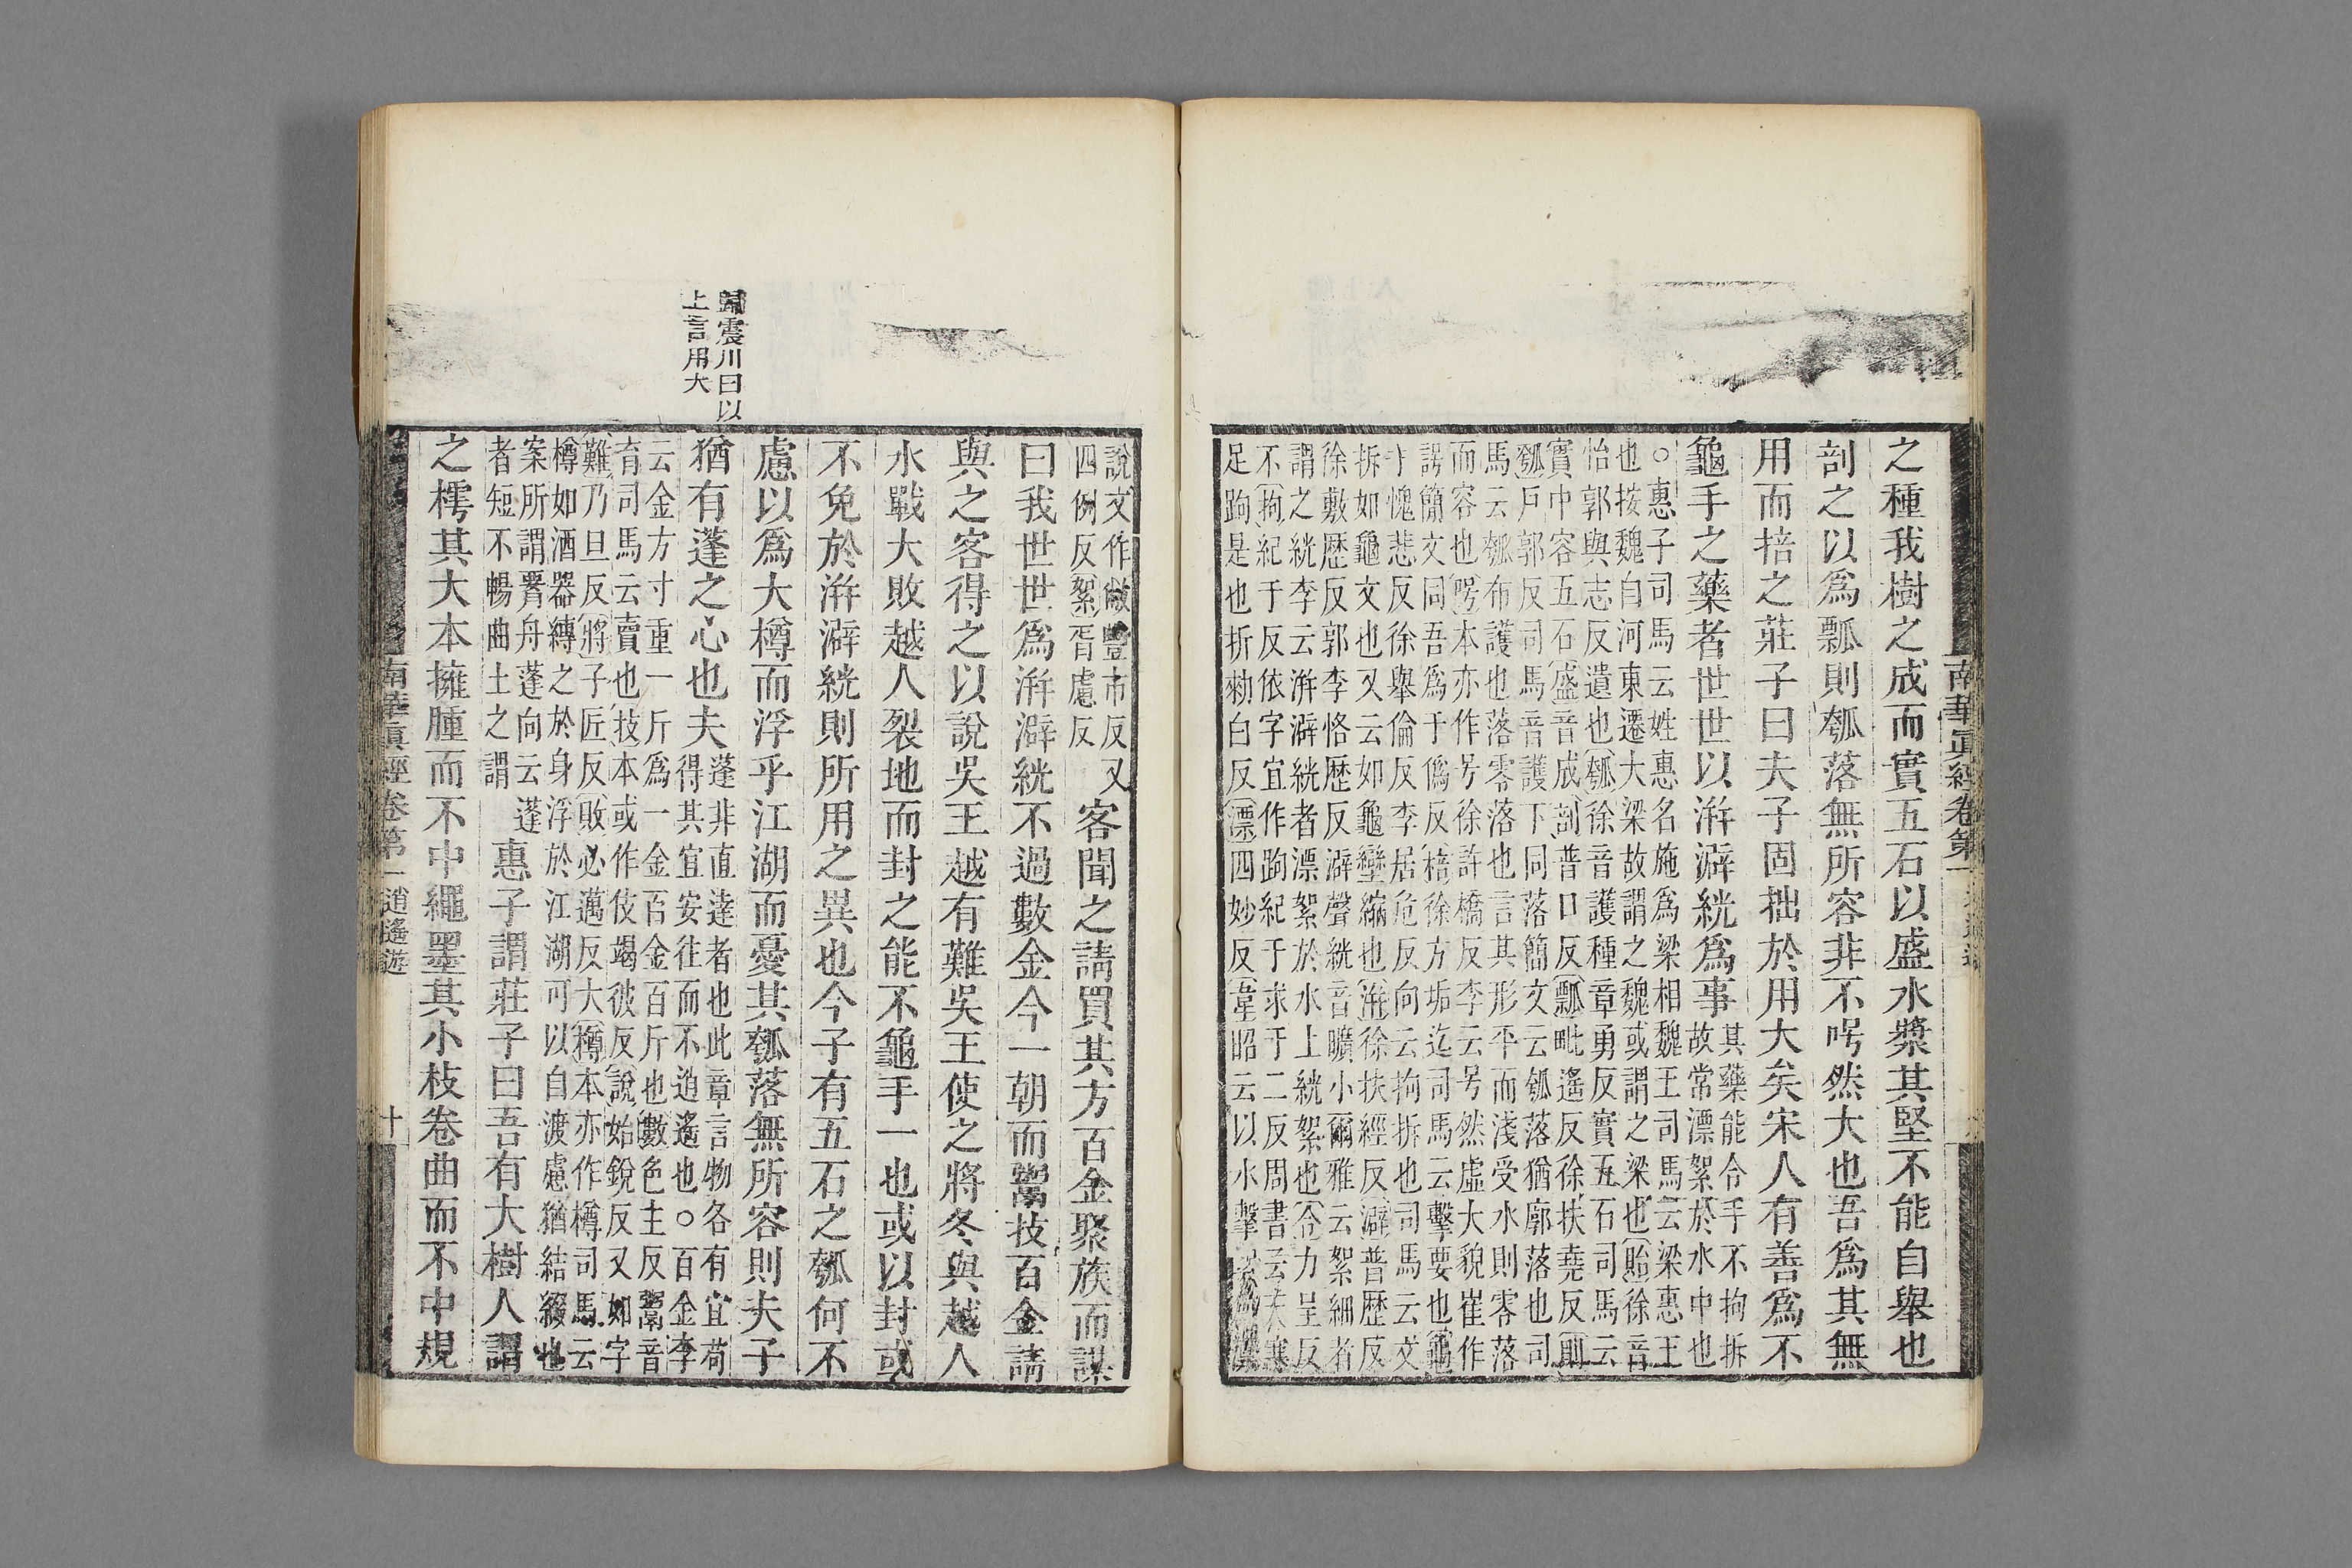 南華真經卷第一
之種我樹之成而實五石以盛水漿其堅不能自舉也
剖之以爲瓢則瓠落無所容非不呺然大也吾爲其無
用而掊之莊子曰夫子固拙於用大矣宋人有善爲不
龜手之藥者世世以洴澼絖爲事其藥能令手不拘拆
故常漂絮於水中也
○惠子司馬云姓惠名施爲梁相魏王司馬云梁惠王
也按魏自河東遷大梁故謂之魏或謂之梁也貽徐音
怡郭與志反遺也瓠徐音護種章勇反實五石司馬云
實中容五石盛音成剖普口反瓢毗遙反徐扶堯反則
瓠戶郭反司馬音護下同落簡文云瓠落猶廓落也司
馬云瓠布護也落零落也言其形平而淺受水則零落
而容也呺本亦作号徐許橋反李云号然虛大貌崔作
謣簡文同吾爲于僞反掊徐方垢反司馬云擊要也龜
手愧悲反徐舉倫反李居危反向云拘拆也司馬云文
拆如龜文也又云如龜攣縮也洴徐扶經反澼普歷反
徐敷歷反郭李恪歷反澼聲絖音曠小爾雅云絮細者
謂之絖李云洴澼絖者漂絮於水上絖絮也令力呈反
不拘紀于反依字宜作跔紀于求于二反周書云天寒
足跔是也折勑白反漂四妙反韋昭云以水擊
說文作敝豐市反又
四例反絮胥慮反客聞之請買其方百金聚族而謀
曰我世世爲洴澼絖不過數金今一朝而鬻技百金請
與之客得之以說吳王越有難吳王使之將冬與越人
水戰大敗越人裂地而封之能不龜手一也或以封或
不免於洴澼絖則所用之異也今子有五石之瓠何不
慮以爲大樽而浮乎江湖而憂其瓠落無所容則夫子
歸震川曰以
上言用大
猶有蓬之心也夫蓬非直達者也此章言物各有宜苟
得其宜安往而不逍遙也○百金李
云金方寸重一斤爲一金百金百斤也數色主反鬻音
育司馬云賣也技本或作伎竭彼反說始銳反又如字
難乃旦反將子匠反敗必邁反大樽本亦作樽司馬云
樽如酒器縛之於身浮於江湖可以自渡慮猶結綴也
案所謂腰舟蓬向云蓬
者短不暢曲士之謂惠子謂莊子曰吾有大樹人謂
之樗其大本擁腫而不中繩墨其小枝卷曲而不中規
南華真經卷第一逍遙遊 十